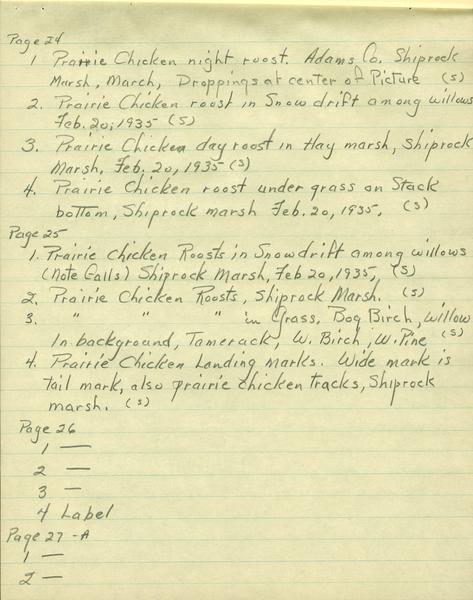 Page 24
1 Prairie Chicken night roost. Adams Co. Shiprock
Marsh, March, Droppings at center of Picture (S)
2. Prairie Chicken roost in Snowdrift among willows
Feb. 20, 1935 (S)
3. Prairie Chicken day roost in Hay marsh, Shiprock
Marsh, Feb. 20, 1935 (S)
4. Prairie Chicken roost under grass on Stack
bottom, Shiprock marsh Feb. 20, 1935. (S)
Page 25
1. Prairie Chicken Roosts in Snowdrift among willows
(Note Galls) Shiprock Marsh, Feb 20, 1935, (S)
2. Prairie Chicken Roosts, Shiprock Marsh. (S)
3. " " " in Grass, Bog Birch, Willow
In background, Tamerack, W. Birch, W. Pine (S)
4. Prairie Chicken Landing marks. Wide mark is
tail mark, also prairie chicken tracks, Shiprock
marsh. (S)
Page 26
1 —
2 —
3 —
4 Label
Page 27 -A
1 —
2 —